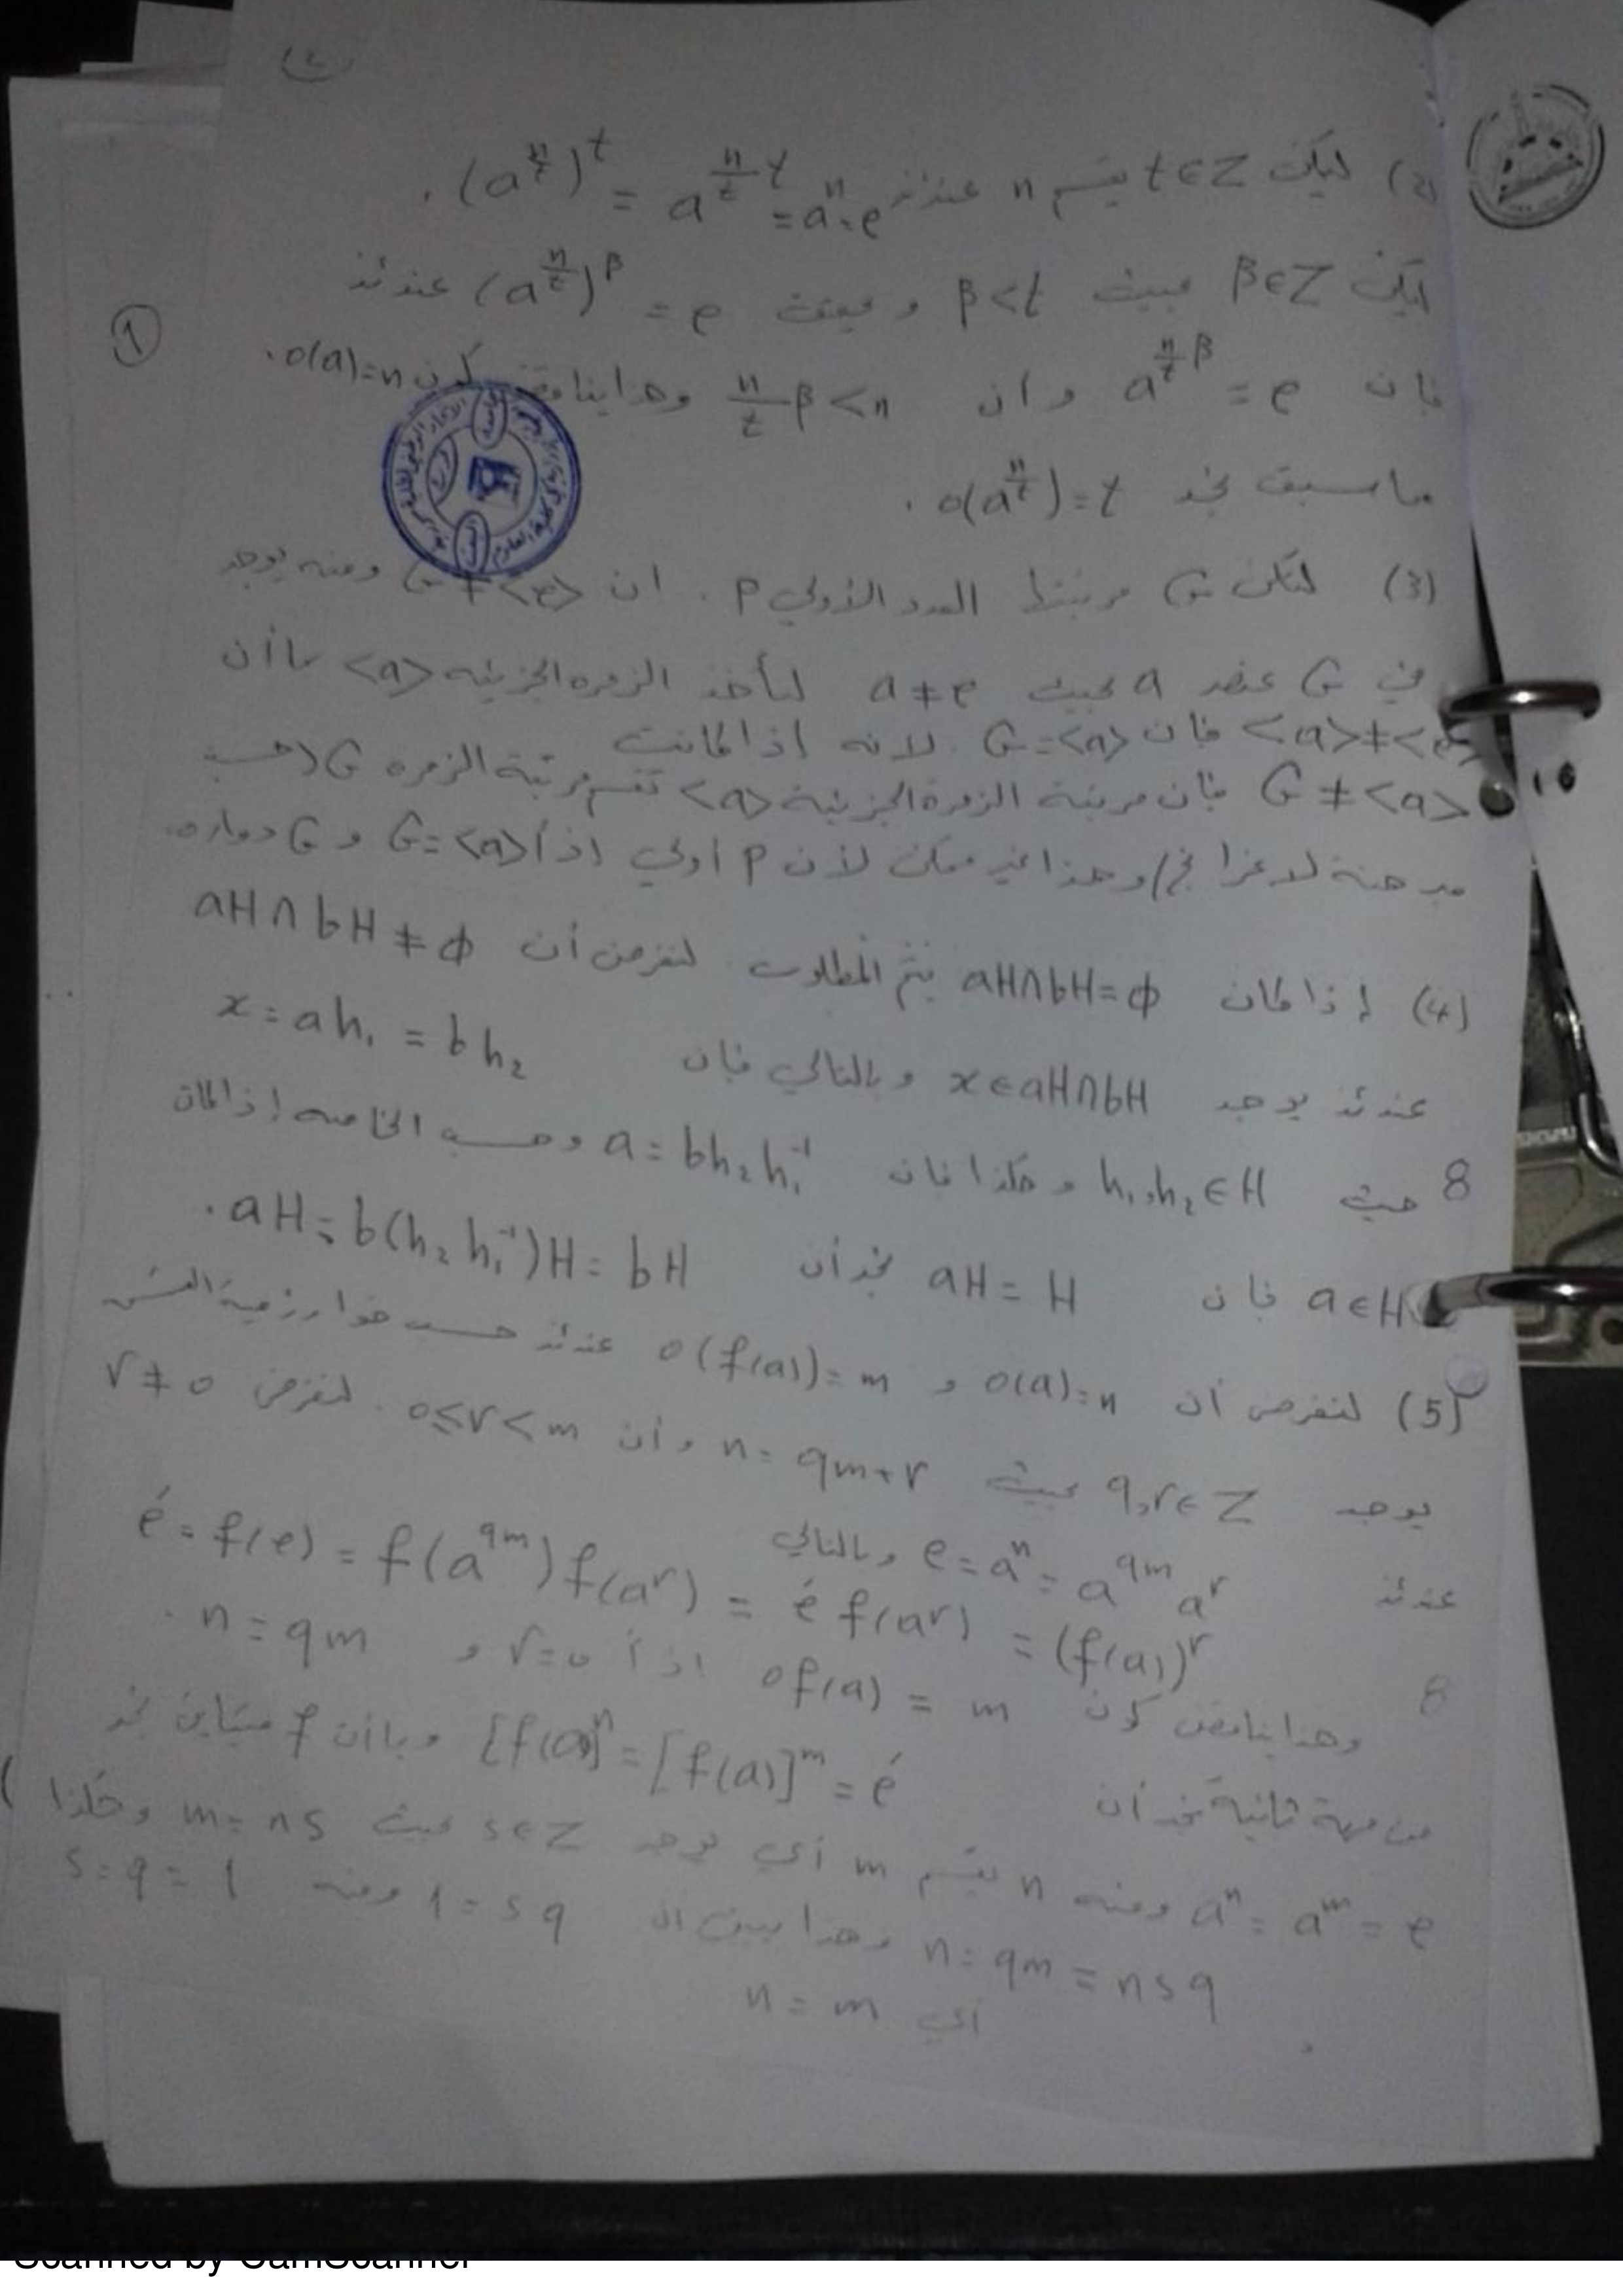 (2)
(2) ليكن t∈Z يقسم n عندئذ (a^{n/t})^t = a^{n/t t} = a^n = e .
ليكن β∈Z بحيث β<t وبحيث (a^{n/t})^β = e عندئذ
①
فإن a^{n/t β} = e وأن n/t β < n وهذا يناقض كون o(a)=n .
مما سبق نجد o(a^{n/t}) = t .
(3) لتكن G مرتبتها العدد الأولي p . ان G ≠ <e> ومنه يوجد
في G عنصر a بحيث a ≠ e لنأخذ الزمرة الجزئية <a> بما أن
<a> ≠ <e> فان G = <a> . لانه إذا كانت
G ≠ <a> فان مرتبة الزمرة الجزئية <a> تقسم مرتبة الزمره G (حسب
مبرهنة لاغرانج) وهذا غير ممكن لأن p أولي اذاً G = <a> و G دواره.
(4) إذا كان aH∩bH=φ يتم المطلوب . لنفرض أن aH∩bH≠φ
عندئذ يوجد x∈aH∩bH وبالتالي فان x = ah₁ = bh₂
8 حيث h₁,h₂∈H وهكذا فان a = bh₂h₁⁻¹ وحسب الخاصه إذا كان
a∈H فان aH = H نجد أن aH = b(h₂h₁⁻¹)H = bH .
(5) لنفرض أن o(a)=n و o(f(a))=m عندئذ حسب خوارزمية القسمة
يوجد q,r∈Z بحيث n = qm+r وأن 0≤r<m . لنفرض r≠0
عندئذ e = a^n = a^{qm} a^r وبالتالي
é = f(e) = f(a^{qm}) f(a^r) = é f(a^r) = (f(a))^r
8
وهذا يناقض كون o f(a) = m اذاً r=0 و n = qm .
من جهة ثانية نجد أن [f(a)]^n = [f(a)]^m = é وبما أن f متباين نجد
a^n = a^m = e ومنه n يقسم m أي يوجد s∈Z بحيث m = ns وهكذا
n = qm = nsq وهذا يبين ان 1 = sq ومنه s = q = 1
أي n = m
Scanned by CamScanner